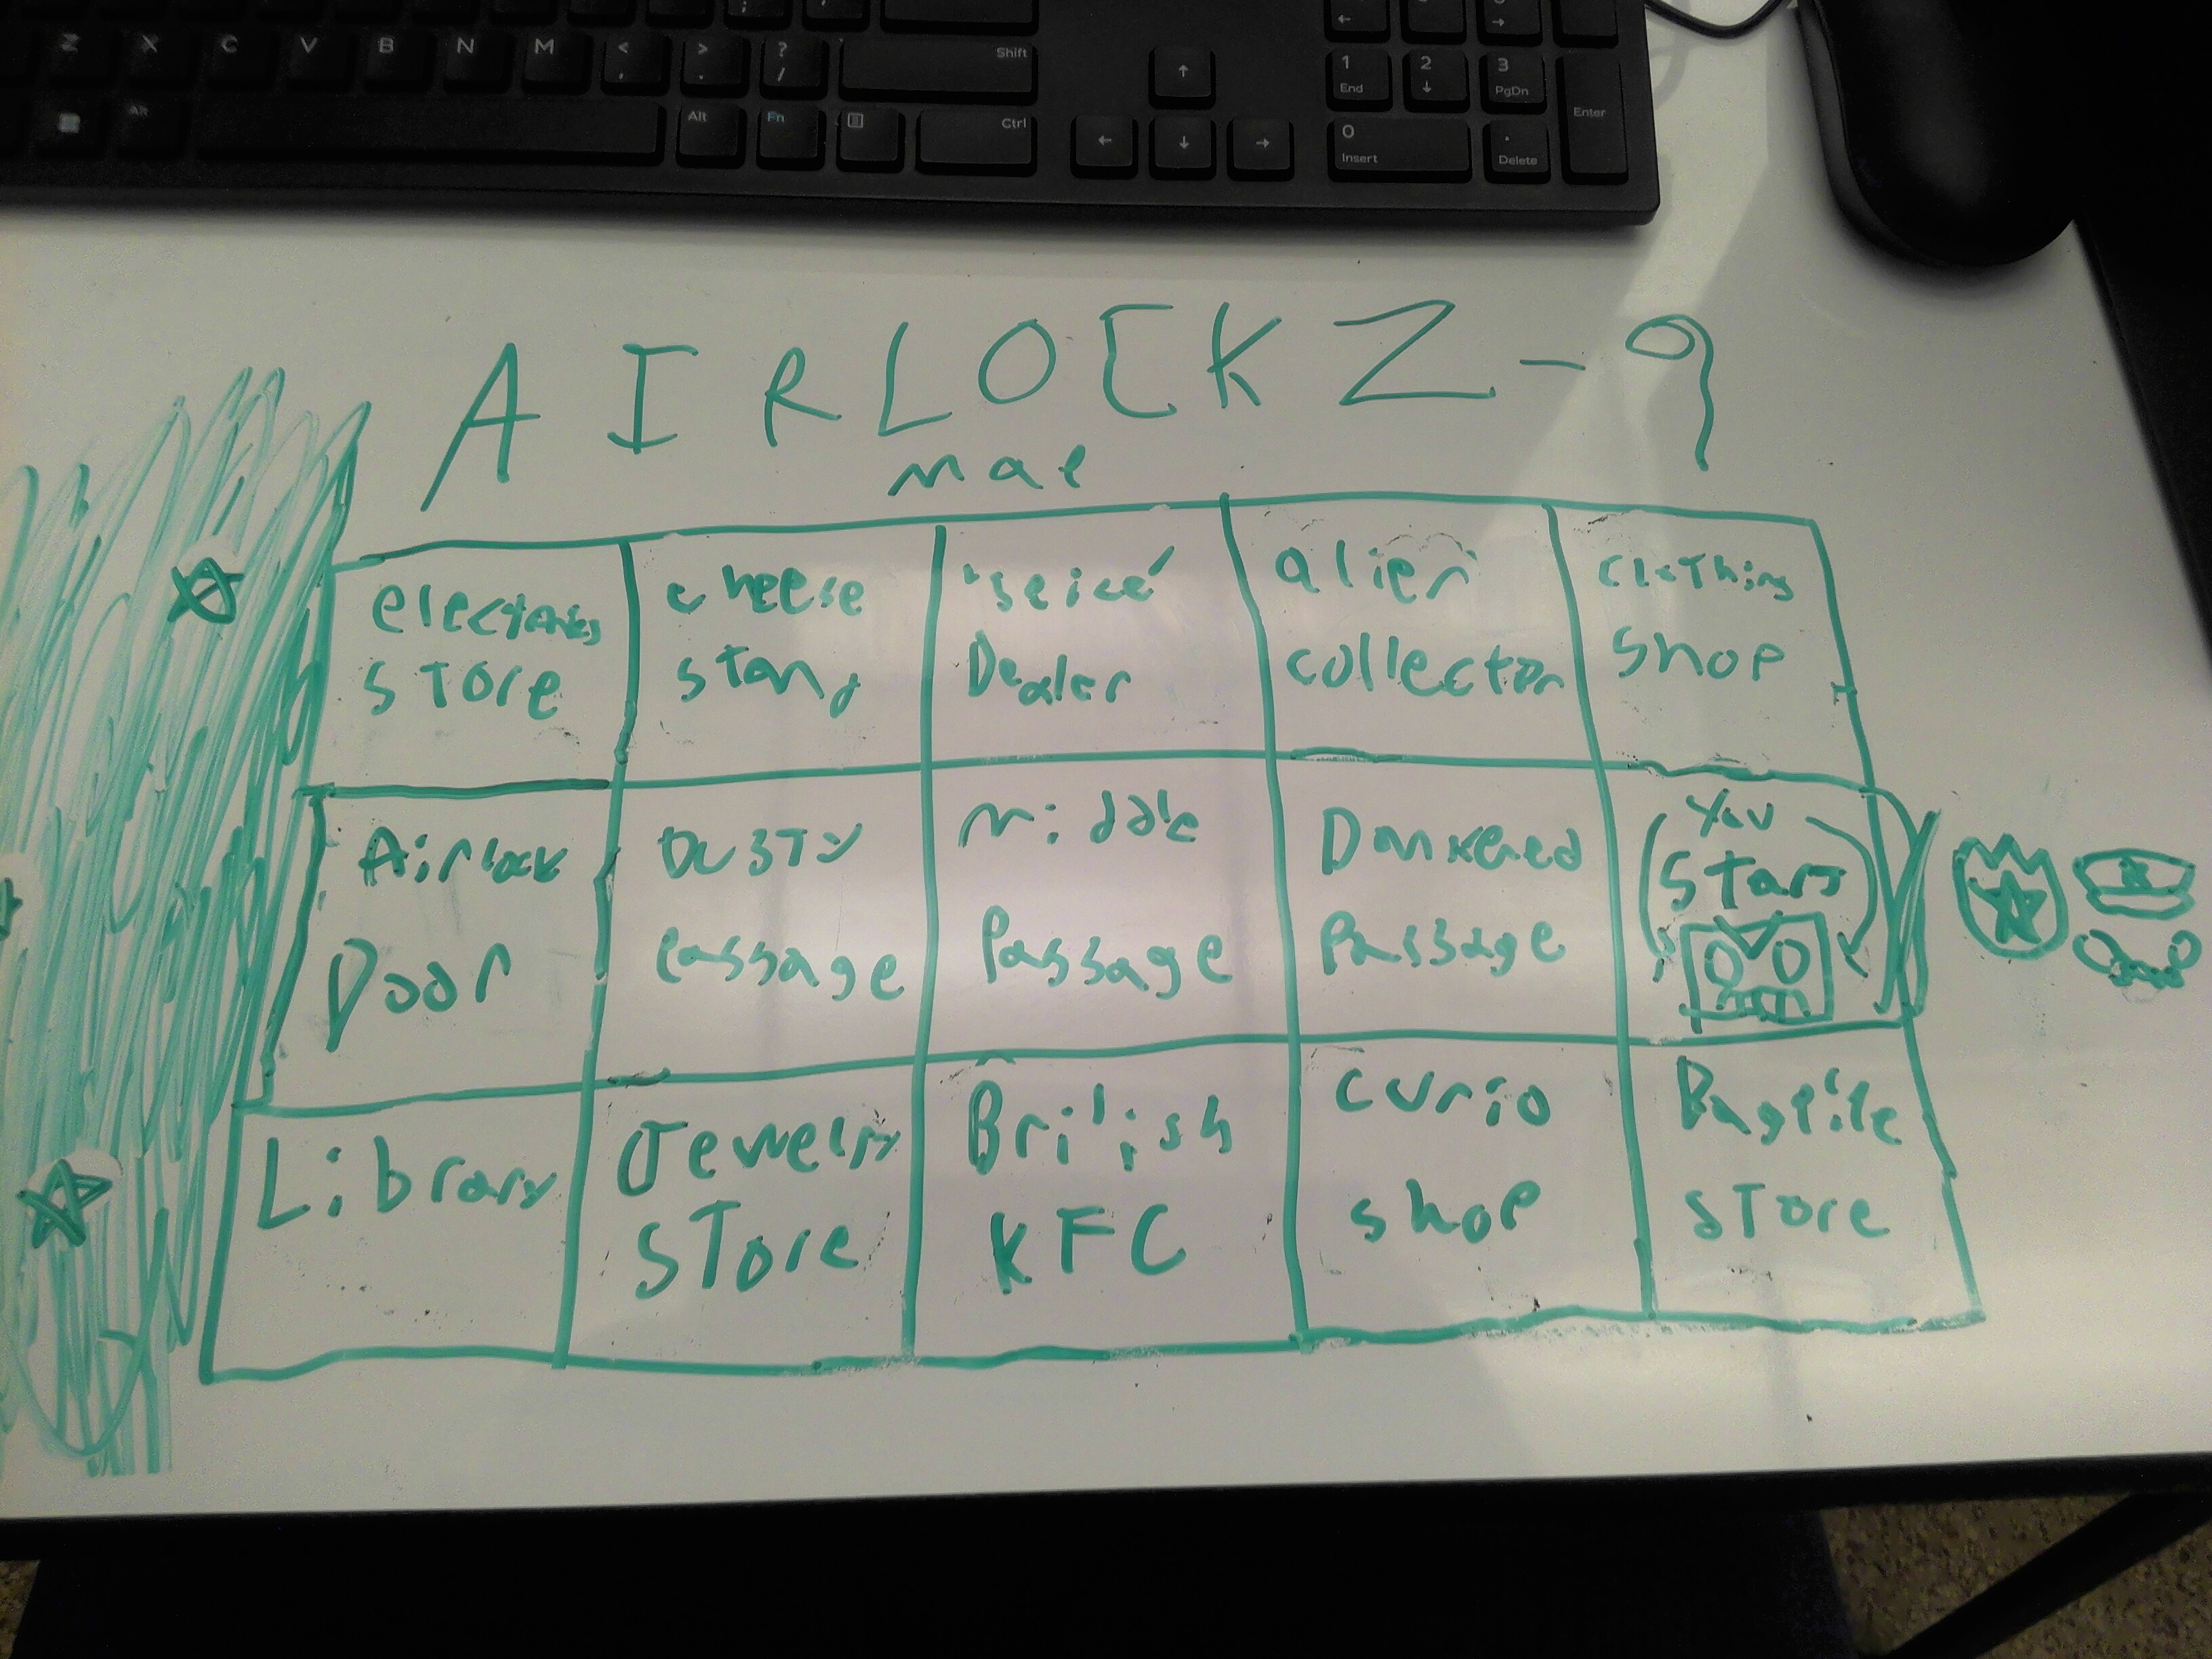 Z X C V B N M < , > . ? / Shift ↑ 1 End 2 ↓ 3 PgDn Enter
Alt Alt Fn Ctrl ← ↓ → 0 Insert . Delete
AIRLOCK Z-9
map
electronics
store
cheese
stand
Dealer
alien
collector
clothing
shop
Airlock
Door
Dusty
Passage
Middle
Passage
Darkened
Passage
You
Start
Library
Jewelry
Store
British
KFC
curio
shop
Bagpipe
Store